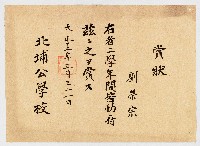 賞狀
劉榮宗
右者二學年間皆勤
茲ニ之ヲ賞ス
大正十三年三月二十一日
北埔公學校